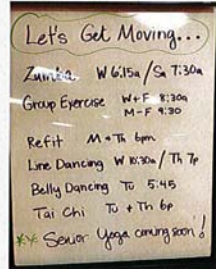 Let's Get Moving...
Zumba W 6:15a / Sa 7:30a
Group Exercise W+F 8:30a
M-F 9:30
Refit M+Th 6pm
Line Dancing W 10:30a / Th 7p
Belly Dancing Tu 5:45
Tai Chi Tu + Th 6p
Senior Yoga coming soon!